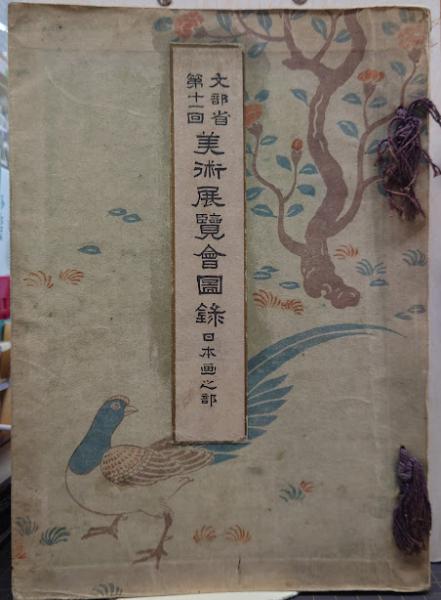 文部省
第十一回
美術展覽會圖錄
日本画之部